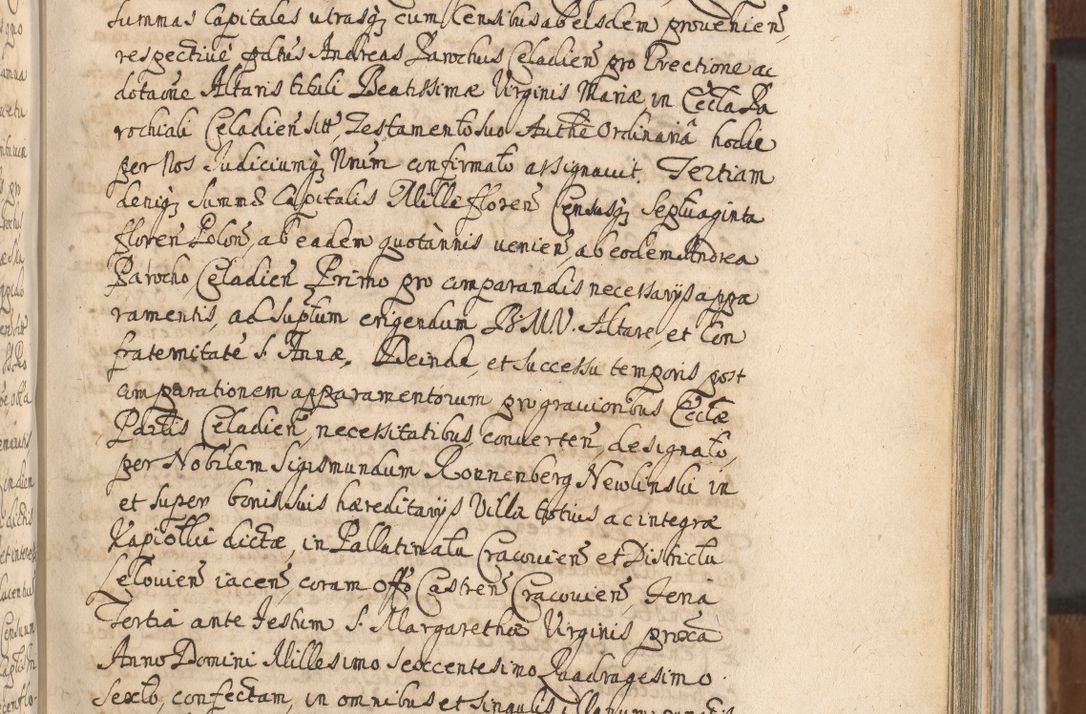 summas Capitales utrasq; cum Censibus ab eisdem provenien̄,
respectivè p̱dtus Andreas Parochus Celadien̄ pro Erectione ac
dotaōne Altaris tituli Beatissimæ Virginis Mariæ, in Eccla Pa
rochiali Celadien̄ sitt, Testamento suo Authē Ordinariâ hodie
per Nos Judiciumq; Nrūm confirmato assignavit. Tertiam
deniq; summē Capitalis Mille floren̄ Censusq; Septuaginta
floren̄ Polon̄, ab eadem quotannis venien̄, ab eodem Andrea
Parocho Celadien̄ Primo pro comparandis necessarijs appa
ramentis, ad Suptum erigendum B: M: V. Altare, et Con
fraternitatē S. Annæ, Deinde, et successu temporis post
comparationem apparamentorum pro gravioribus Ecclæ
Partis Celadien̄, necessitatibus, converten̄, designato,
per Nobilem Sigismundum Ronnenberg Newlinski in
et super bonis suis hæreditarijs Villa totius ac integræ
Kapiołki dictæ, in Pallatinatu Cracovien̄ et Districtu
Lelovien̄ iacen̄, coram Offō Castren̄ Cracovien̄, Feria
Tertia ante Festum S. Margarethæ Virginis proxa
Anno Domini Millesimo Sexcentesimo Quadragesimo
Sexto, confectam, in omnibus et singulis illarum punctis